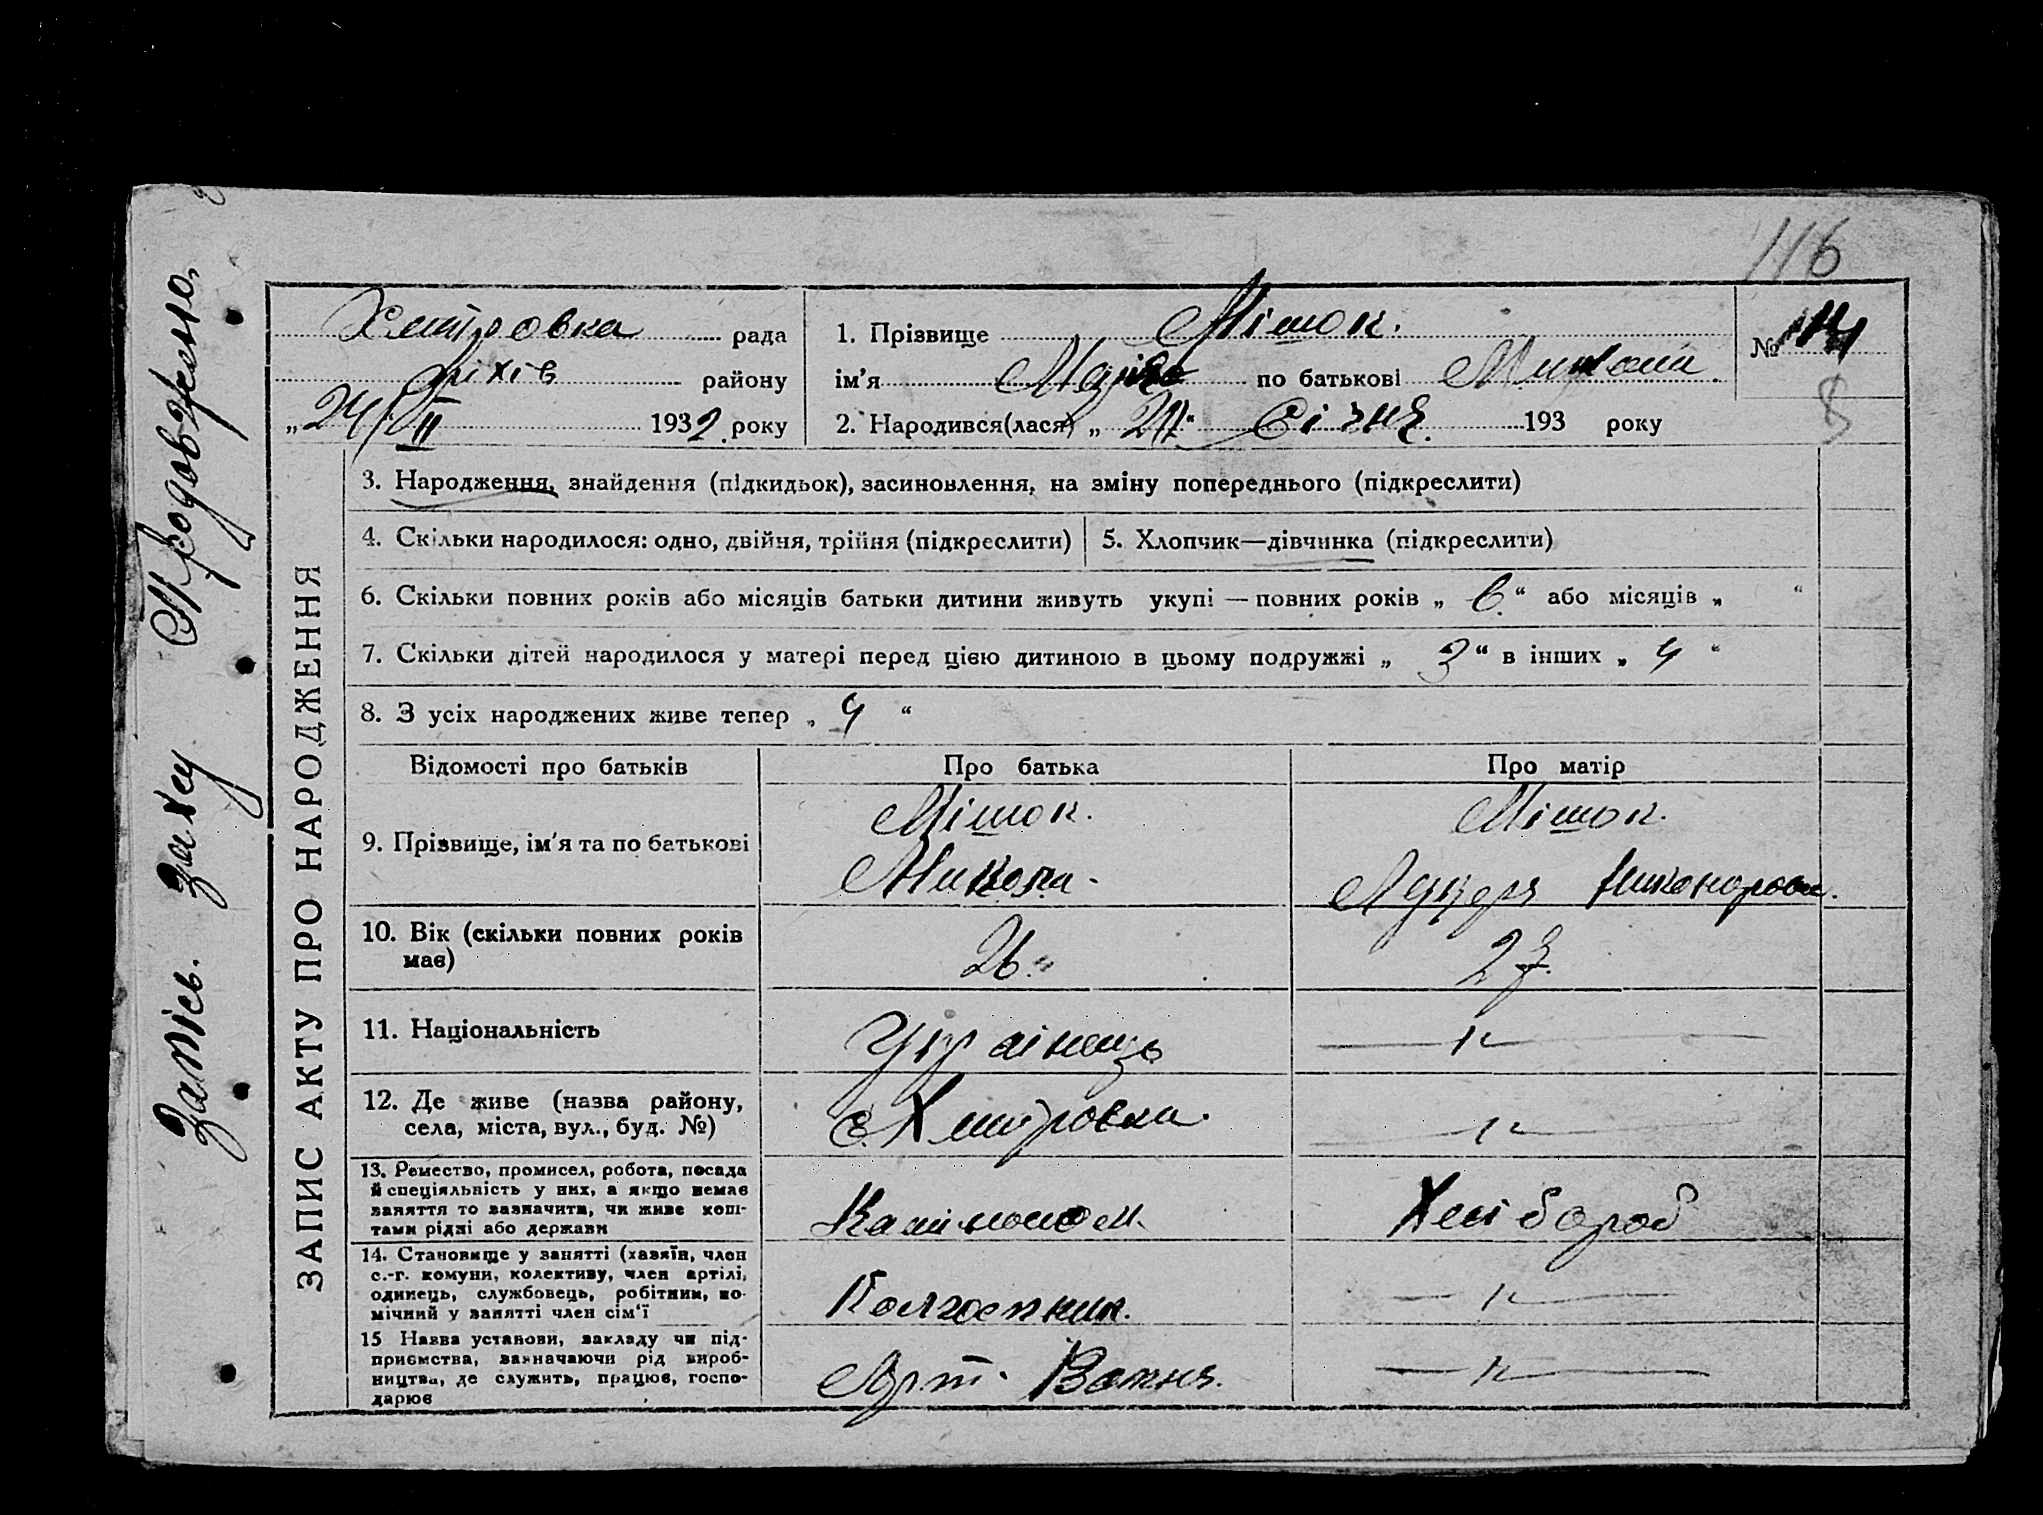 116
Хмитровка рада
Оріхів району
„24/II 1932 року
1. Прізвище Мішок.
ім'я Марія по батькові Микола
2. Народився(лася) „ 21“ Січня. 193 року
№ 14
8
ЗАПИС АКТУ ПРО НАРОДЖЕННЯ
3. Народження, знайдення (підкидьок), засиновлення, на зміну попереднього (підкреслити)
4. Скільки народилося: одно, двійня, трійня (підкреслити)
5. Хлопчик—дівчинка (підкреслити)
6. Скільки повних років або місяців батьки дитини живуть укупі — повних років „ 6 “ або місяців „ “
7. Скільки дітей народилося у матері перед цією дитиною в цьому подружжі „ 3 “ в інших „ 4 “
8. З усіх народжених живе тепер „ 4 “
Відомості про батьків Про батька Про матір
9. Прізвище, ім'я та по батькові
Мішок.
Микола.
Мішок.
Никонорова.
10. Вік (скільки повних років
має)
26. 27.
11. Національність Українець —"—
12. Де живе (назва району,
села, міста, вул., буд. №)
с. Хмитровка. —"—
13. Ремество, промисел, робота, посада
й спеціяльність у них, а якщо немає
заняття то зазначити, чи живе кош-
тами рідні або держави
Хлібороб
14. Становище у занятті (хазяїн, член
с.-г. комуни, колективу, член артілі,
одинець, службовець, робітник, по-
мічний у занятті член сім'ї
Колгоспник. —"—
15 Назва установи, закладу чи під-
приємства, зазначаючи рід вироб-
ництва, де служить, працює, госпо-
дарює
Арт. —"—
Запись. загсу Продовжено.